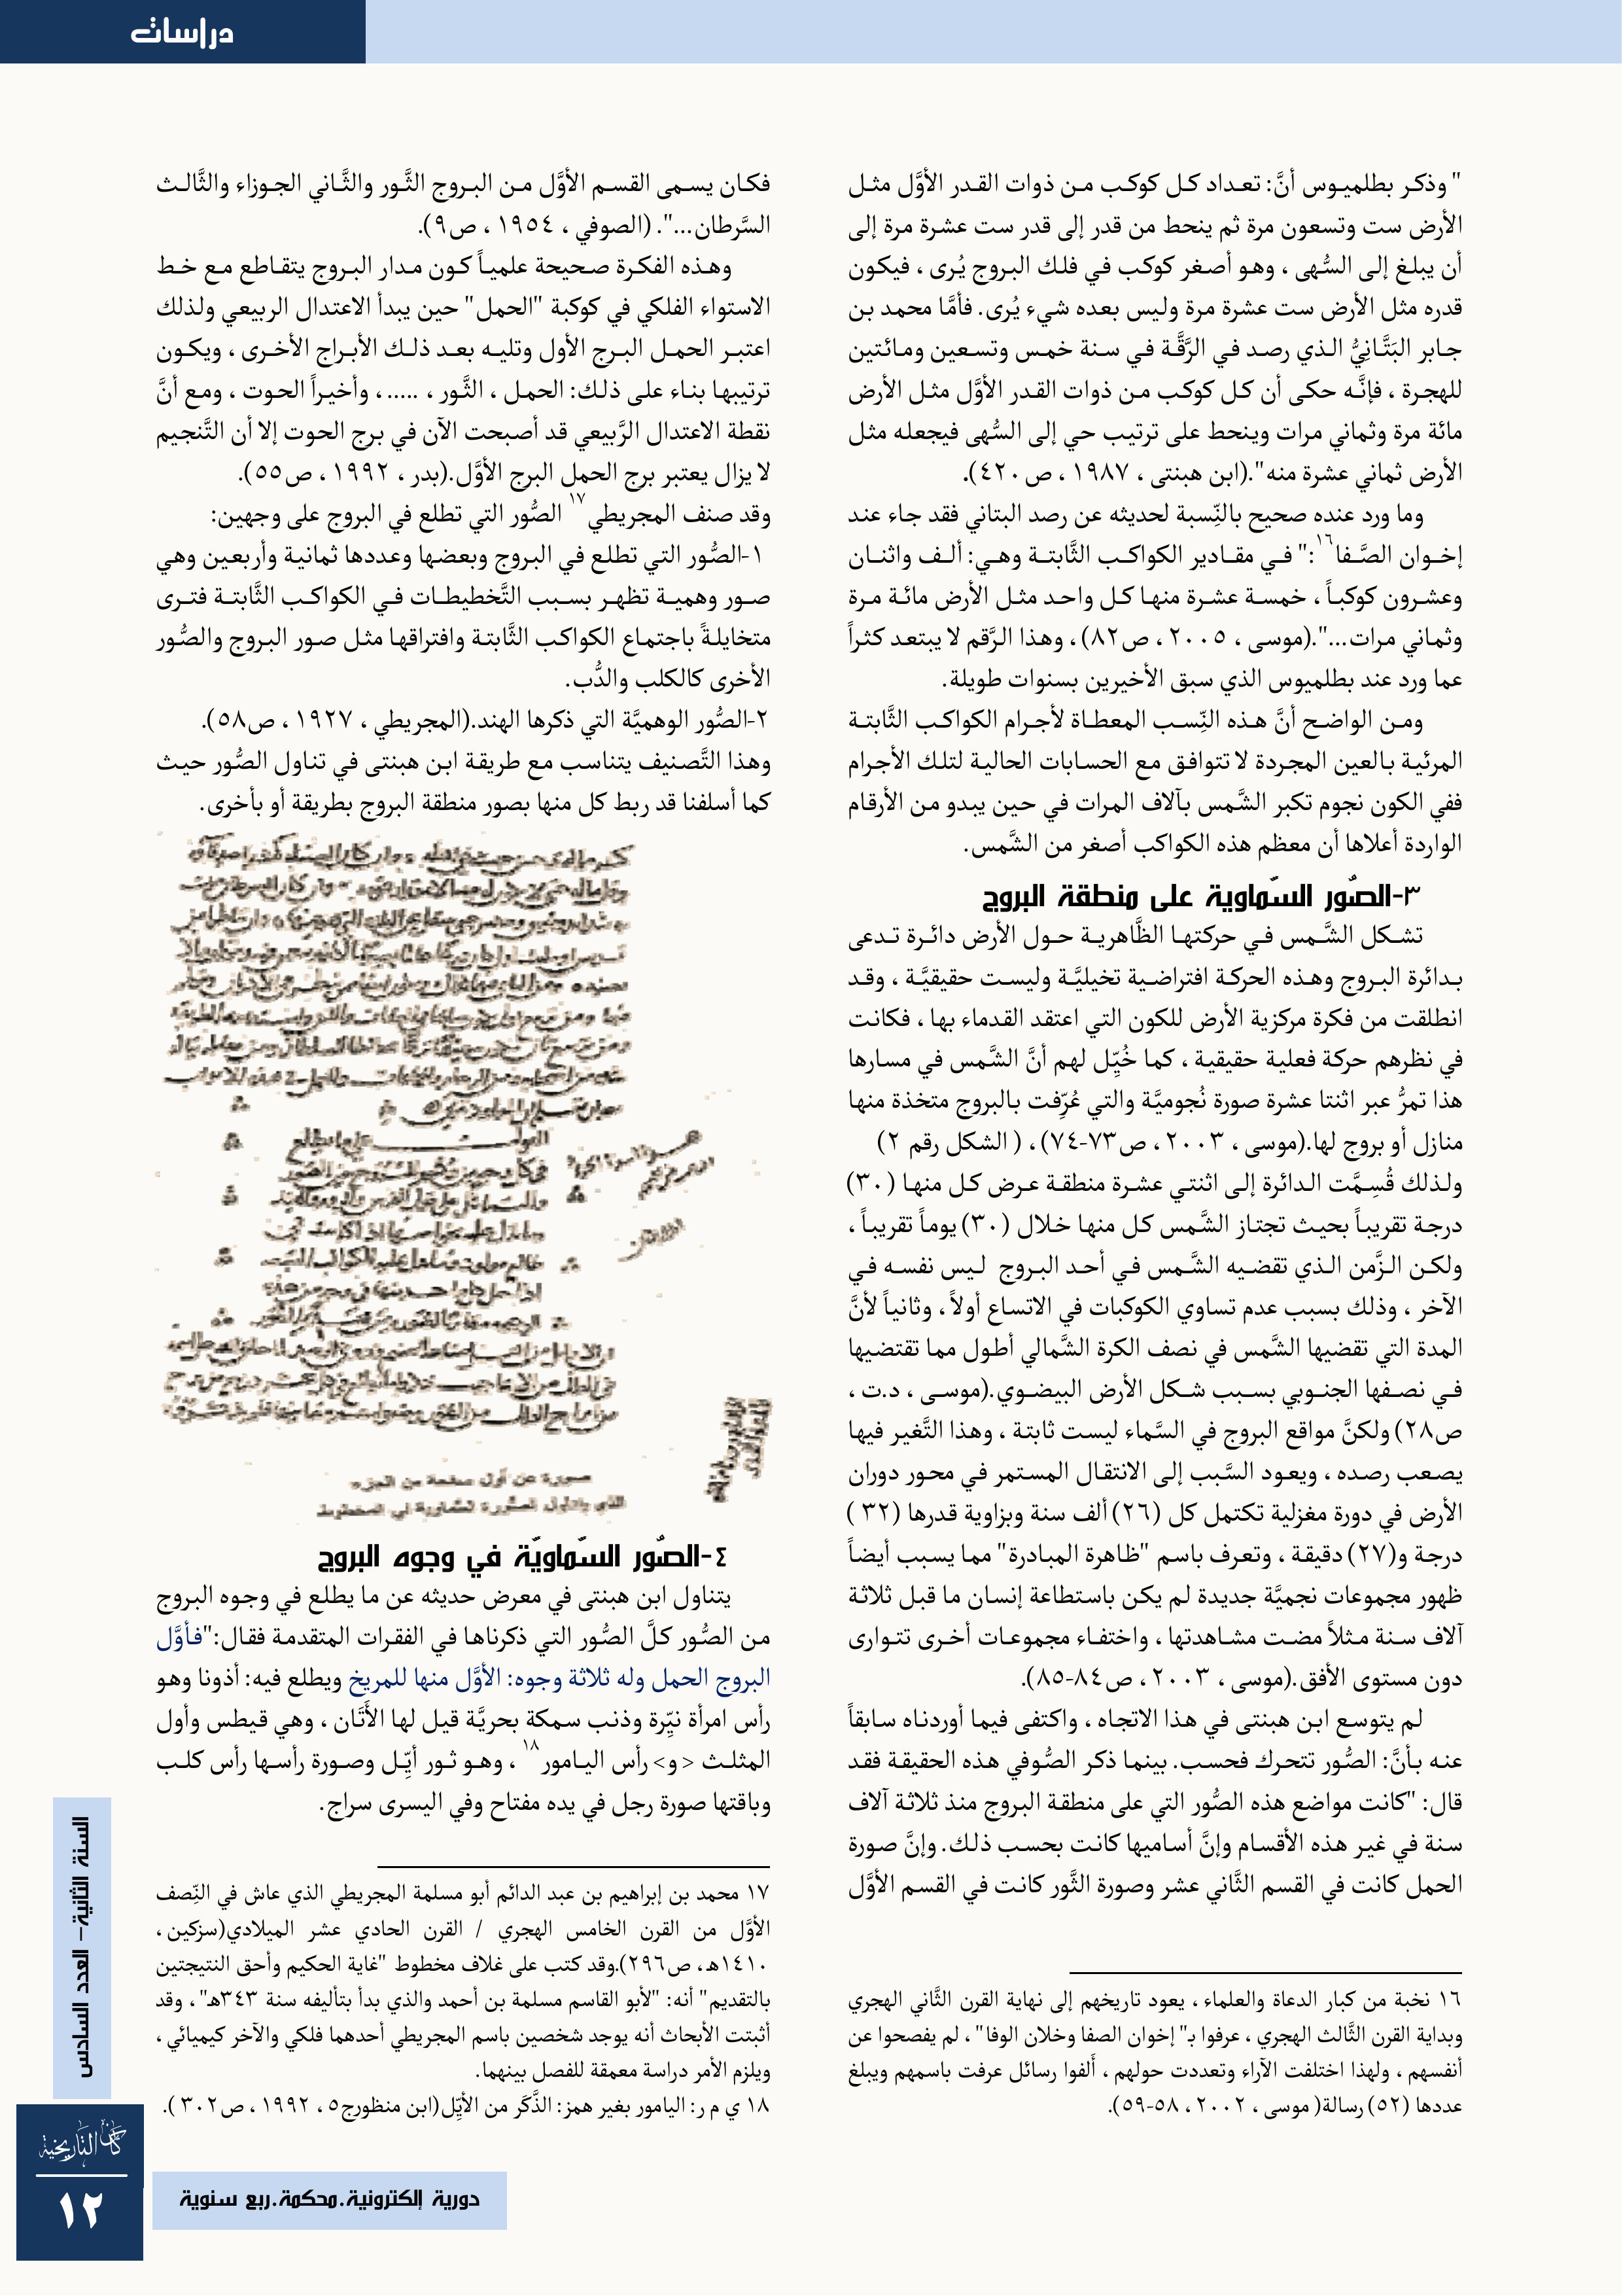 دراسات
" وذكر بطلميوس أنَّ: تعداد كل كوكب من ذوات القدر الأوَّل مثل
الأرض ست وتسعون مرة ثم ينحط من قدر إلى قدر ست عشرة مرة إلى
أن يبلغ إلى السُّهى ، وهو أصغر كوكب في فلك البروج يُرى ، فيكون
قدره مثل الأرض ست عشرة مرة وليس بعده شيء يُرى. فأمَّا محمد بن
جابر البَتَّانِيُّ الذي رصد في الرَّقَّة في سنة خمس وتسعين ومائتين
للهجرة ، فإنَّه حكى أن كل كوكب من ذوات القدر الأوَّل مثل الأرض
مائة مرة وثماني مرات وينحط على ترتيب حي إلى السُّهى فيجعله مثل
الأرض ثماني عشرة منه".(ابن هبنتى ، ١٩٨٧ ، ص٤٢٠).
وما ورد عنده صحيح بالنِّسبة لحديثه عن رصد البتاني فقد جاء عند
إخوان الصَّفا١٦:" في مقادير الكواكب الثَّابتة وهي: ألف واثنان
وعشرون كوكباً ، خمسة عشرة منها كل واحد مثل الأرض مائة مرة
وثماني مرات...".(موسى ، ٢٠٠٥ ، ص٨٢) ، وهذا الرَّقم لا يبتعد كثراً
عما ورد عند بطلميوس الذي سبق الأخيرين بسنوات طويلة.
ومن الواضح أنَّ هذه النِّسب المعطاة لأجرام الكواكب الثَّابتة
المرئية بالعين المجردة لا تتوافق مع الحسابات الحالية لتلك الأجرام
ففي الكون نجوم تكبر الشَّمس بآلاف المرات في حين يبدو من الأرقام
الواردة أعلاها أن معظم هذه الكواكب أصغر من الشَّمس.
٣-الصّور السّماوية على منطقة البروج
تشكل الشَّمس في حركتها الظَّاهرية حول الأرض دائرة تدعى
بدائرة البروج وهذه الحركة افتراضية تخيليَّة وليست حقيقيَّة ، وقد
انطلقت من فكرة مركزية الأرض للكون التي اعتقد القدماء بها ، فكانت
في نظرهم حركة فعلية حقيقية ، كما خُيِّل لهم أنَّ الشَّمس في مسارها
هذا تمرُّ عبر اثنتا عشرة صورة نُجوميَّة والتي عُرِّفت بالبروج متخذة منها
منازل أو بروج لها.(موسى ، ٢٠٠٣ ، ص٧٣-٧٤) ، ( الشكل رقم ٢)
ولذلك قُسِمَّت الدائرة إلى اثنتي عشرة منطقة عرض كل منها (٣٠)
درجة تقريباً بحيث تجتاز الشَّمس كل منها خلال (٣٠) يوماً تقريباً ،
ولكن الزَّمن الذي تقضيه الشَّمس في أحد البروج ليس نفسه في
الآخر ، وذلك بسبب عدم تساوي الكوكبات في الاتساع أولاً ، وثانياً لأنَّ
المدة التي تقضيها الشَّمس في نصف الكرة الشَّمالي أطول مما تقتضيها
في نصفها الجنوبي بسبب شكل الأرض البيضوي.(موسى ، د.ت ،
ص٢٨) ولكنَّ مواقع البروج في السَّماء ليست ثابتة ، وهذا التَّغير فيها
يصعب رصده ، ويعود السَّبب إلى الانتقال المستمر في محور دوران
الأرض في دورة مغزلية تكتمل كل (٢٦) ألف سنة وبزاوية قدرها (٣٢ )
درجة و(٢٧) دقيقة ، وتعرف باسم "ظاهرة المبادرة" مما يسبب أيضاً
ظهور مجموعات نجميَّة جديدة لم يكن باستطاعة إنسان ما قبل ثلاثة
آلاف سنة مثلاً مضت مشاهدتها ، واختفاء مجموعات أخرى تتوارى
دون مستوى الأفق.(موسى ، ٢٠٠٣ ، ص٨٤-٨٥).
لم يتوسع ابن هبنتى في هذا الاتجاه ، واكتفى فيما أوردناه سابقاً
عنه بأنَّ: الصُّور تتحرك فحسب. بينما ذكر الصُّوفي هذه الحقيقة فقد
قال: "كانت مواضع هذه الصُّور التي على منطقة البروج منذ ثلاثة آلاف
سنة في غير هذه الأقسام وإنَّ أساميها كانت بحسب ذلك. وإنَّ صورة
الحمل كانت في القسم الثَّاني عشر وصورة الثَّور كانت في القسم الأوَّل
١٦ نخبة من كبار الدعاة والعلماء ، يعود تاريخهم إلى نهاية القرن الثَّاني الهجري
وبداية القرن الثَّالث الهجري ، عرفوا بـ" إخوان الصفا وخلان الوفا" ، لم يفصحوا عن
أنفسهم ، ولهذا اختلفت الآراء وتعددت حولهم ، أَلفوا رسائل عرفت باسمهم ويبلغ
عددها (٥٢) رسالة( موسى ، ٢٠٠٢ ، ٥٨-٥٩).
فكان يسمى القسم الأوَّل من البروج الثَّور والثَّاني الجوزاء والثَّالث
السَّرطان...". (الصوفي ، ١٩٥٤ ، ص٩).
وهذه الفكرة صحيحة علمياً كون مدار البروج يتقاطع مع خط
الاستواء الفلكي في كوكبة "الحمل" حين يبدأ الاعتدال الربيعي ولذلك
اعتبر الحمل البرج الأول وتليه بعد ذلك الأبراج الأخرى ، ويكون
ترتيبها بناء على ذلك: الحمل ، الثَّور ، ..... ، وأخيراً الحوت ، ومع أنَّ
نقطة الاعتدال الرَّبيعي قد أصبحت الآن في برج الحوت إلا أن التَّنجيم
لا يزال يعتبر برج الحمل البرج الأوَّل.(بدر ، ١٩٩٢ ، ص٥٥).
وقد صنف المجريطي١٧ الصُّور التي تطلع في البروج على وجهين:
١-الصُّور التي تطلع في البروج وبعضها وعددها ثمانية وأربعين وهي
صور وهمية تظهر بسبب التَّخطيطات في الكواكب الثَّابتة فترى
متخايلةً باجتماع الكواكب الثَّابتة وافتراقها مثل صور البروج والصُّور
الأخرى كالكلب والدُّب.
٢-الصُّور الوهميَّة التي ذكرها الهند.(المجريطي ، ١٩٢٧ ، ص٥٨).
وهذا التَّصنيف يتناسب مع طريقة ابن هبنتى في تناول الصُّور حيث
كما أسلفنا قد ربط كل منها بصور منطقة البروج بطريقة أو بأخرى.
صورة عن أول صفحة من الجزء
٤-الصّور السّماويّة في وجوه البروج
يتناول ابن هبنتى في معرض حديثه عن ما يطلع في وجوه البروج
من الصُّور كلَّ الصُّور التي ذكرناها في الفقرات المتقدمة فقال:"فأوَّل
البروج الحمل وله ثلاثة وجوه: الأوَّل منها للمريخ ويطلع فيه: أذونا وهو
رأس امرأة نيِّرة وذنب سمكة بحريَّة قيل لها الأَتَان ، وهي قيطس وأول
المثلث <و> رأس اليامور١٨ ، وهو ثور أيِّل وصورة رأسها رأس كلب
وباقتها صورة رجل في يده مفتاح وفي اليسرى سراج.
١٧ محمد بن إبراهيم بن عبد الدائم أبو مسلمة المجريطي الذي عاش في النِّصف
الأوَّل من القرن الخامس الهجري / القرن الحادي عشر الميلادي(سزكين ،
١٤١٠هـ ، ص٢٩٦).وقد كتب على غلاف مخطوط "غاية الحكيم وأحق النتيجتين
بالتقديم" أنه: "لأبو القاسم مسلمة بن أحمد والذي بدأ بتأليفه سنة ٣٤٣هـ" ، وقد
أثبتت الأبحاث أنه يوجد شخصين باسم المجريطي أحدهما فلكي والآخر كيميائي ،
ويلزم الأمر دراسة معمقة للفصل بينهما.
١٨ ي م ر: اليامور بغير همز: الذَّكَر من الأيِّل(ابن منظورج٥ ، ١٩٩٢ ، ص٣٠٢ ).
السنة الثانية– العدد السادس
كان التاريخية
١٢
دورية إلكترونية.محكمة.ربع سنوية